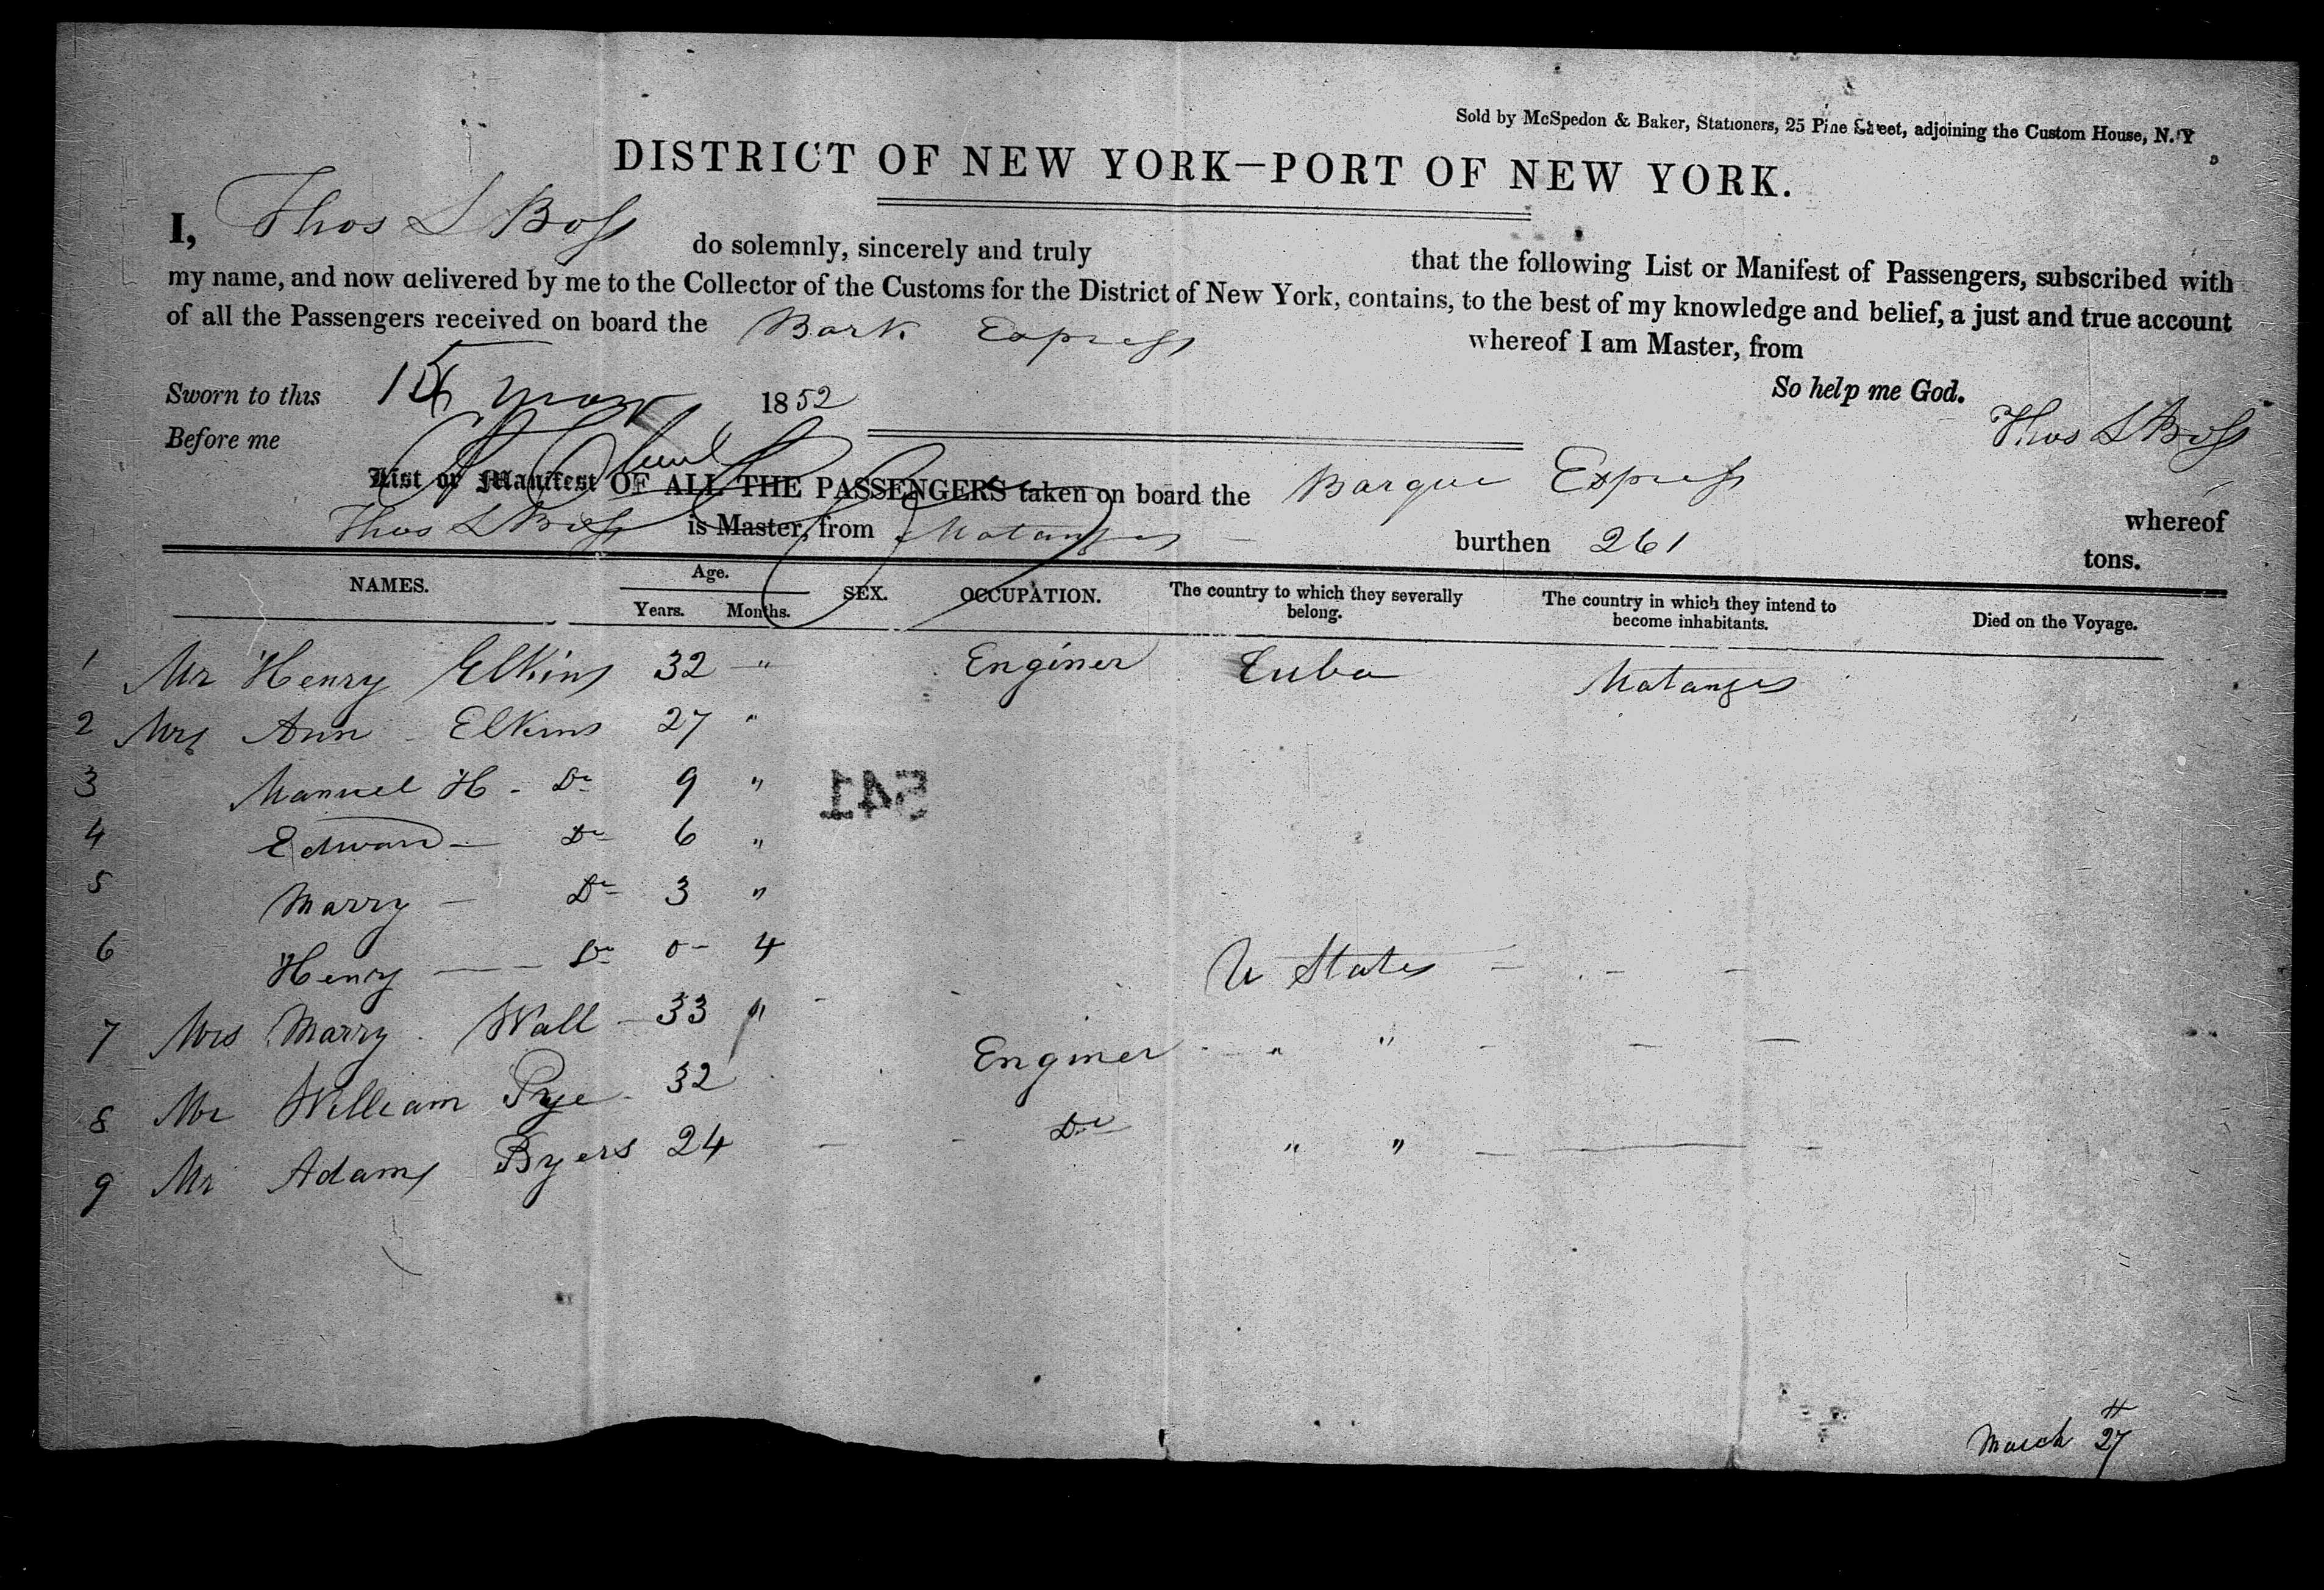 Sold by McSpedon & Baker, Stationers, 25 Pine Street, adjoining the Custom House, N. Y
DISTRICT OF NEW YORK—PORT OF NEW YORK.
I, Thos L Boss do solemnly, sincerely and truly that the following List or Manifest of Passengers, subscribed with
my name, and now delivered by me to the Collector of the Customs for the District of New York, contains, to the best of my knowledge and belief, a just and true account
of all the Passengers received on board the Bark Express whereof I am Master, from
So help me God.
Sworn to this 15 1852
Thos L Boss
Before me
List or Manifest OF ALL THE PASSENGERS taken on board the Barque Express whereof
Thos L Boss is Master, from Matanzas burthen 261 tons.
NAMES. Age. Years. Months. SEX. OCCUPATION. The country to which they severally belong. The country in which they intend to become inhabitants. Died on the Voyage.
1 Mr Henry Elkins 32 " Enginer Cuba Matanzas
2 Mrs Ann Elkins 27 "
3 Manuel H - Do 9 "
541
4 Edward — Do 6 "
5 Marry — Do 3 "
6 Henry — Do 0 - 4
7 Mrs Marry Wall - 33 " U States — - -
8 Mr William Pye - 32 Enginer " " - — —
9 Mr Adams Byers 24 - - Do " " — — -
March 27